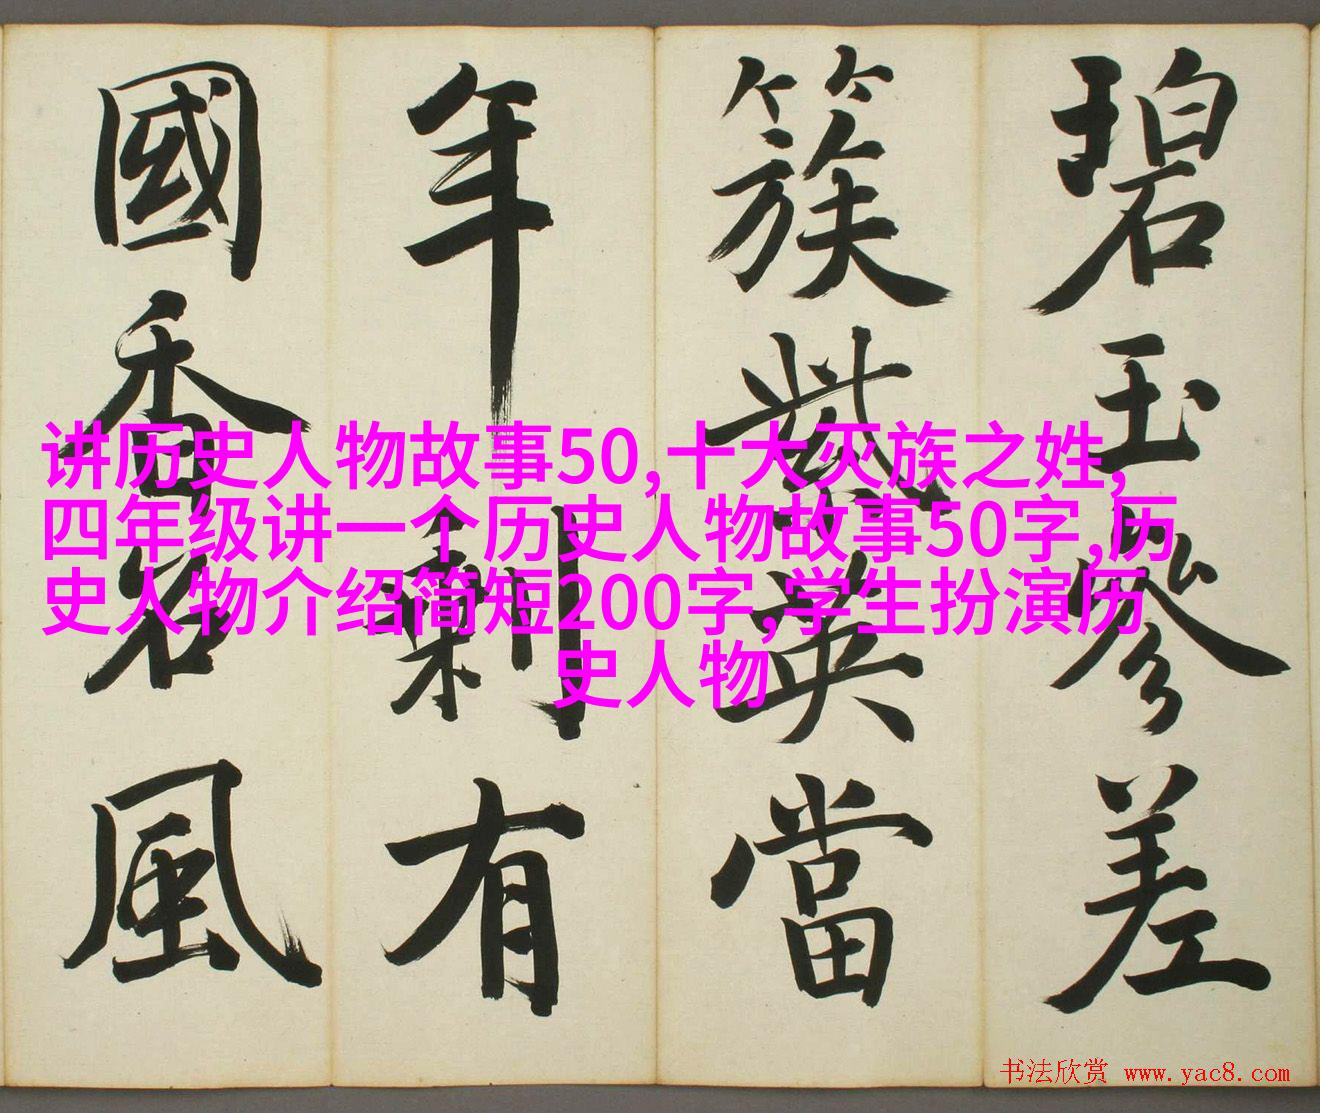 碧玉參差
簇紫英當
年剩有
國香名風
讲历史人物故事50,十大灭族之姓,
四年级讲一个历史人物故事50字,历
史人物介绍简短200字,学生扮演历
史人物
书法欣赏 www.yac8.com